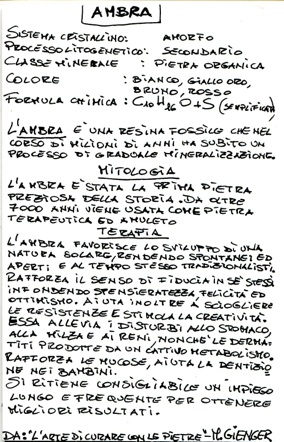 AMBRA
SISTEMA CRISTALLINO: AMORFO
PROCESSO LITOGENETICO: SECONDARIO
CLASSE MINERALE : PIETRA ORGANICA
COLORE : BIANCO, GIALLO ORO,
BRUNO, ROSSO
FORMULA CHIMICA : C10H16O+S (SEMPLIFICATA)
L'AMBRA E' UNA RESINA FOSSILE CHE NEL
CORSO DI MILIONI DI ANNI HA SUBITO UN
PROCESSO DI GRADUALE MINERALIZZAZIONE.
MITOLOGIA
L'AMBRA E' STATA LA PRIMA PIETRA
PREZIOSA DELLA STORIA. DA OLTRE
7000 ANNI VIENE USATA COME PIETRA
TERAPEUTICA ED AMULETO
TERAPIA
L'AMBRA FAVORISCE LO SVILUPPO DI UNA
NATURA SOLARE, RENDENDO SPONTANEI ED
APERTI E AL TEMPO STESSO TRADIZIONALISTI.
RAFFORZA IL SENSO DI FIDUCIA IN SE' STESSI
INFONDENDO SPENSIERATEZZA, FELICITÀ ED
OTTIMISMO. AIUTA INOLTRE A SCIOGLIERE
LE RESISTENZE E STIMOLA LA CREATIVITÀ.
ESSA ALLEVIA I DISTURBI ALLO STOMACO,
ALLA MILZA E AI RENI, NONCHÈ LE DERMA-
TITI PRODOTTE DA UN CATTIVO METABOLISMO.
RAFFORZA LE MUCOSE, AIUTA LA DENTIZIO
NE NEI BAMBINI.
SI RITIENE CONSIGLIABILE UN IMPIEGO
LUNGO E FREQUENTE PER OTTENERE
MIGLIORI RISULTATI.
DA: "L'ARTE DI CURARE CON LE PIETRE" - M. GIENGER